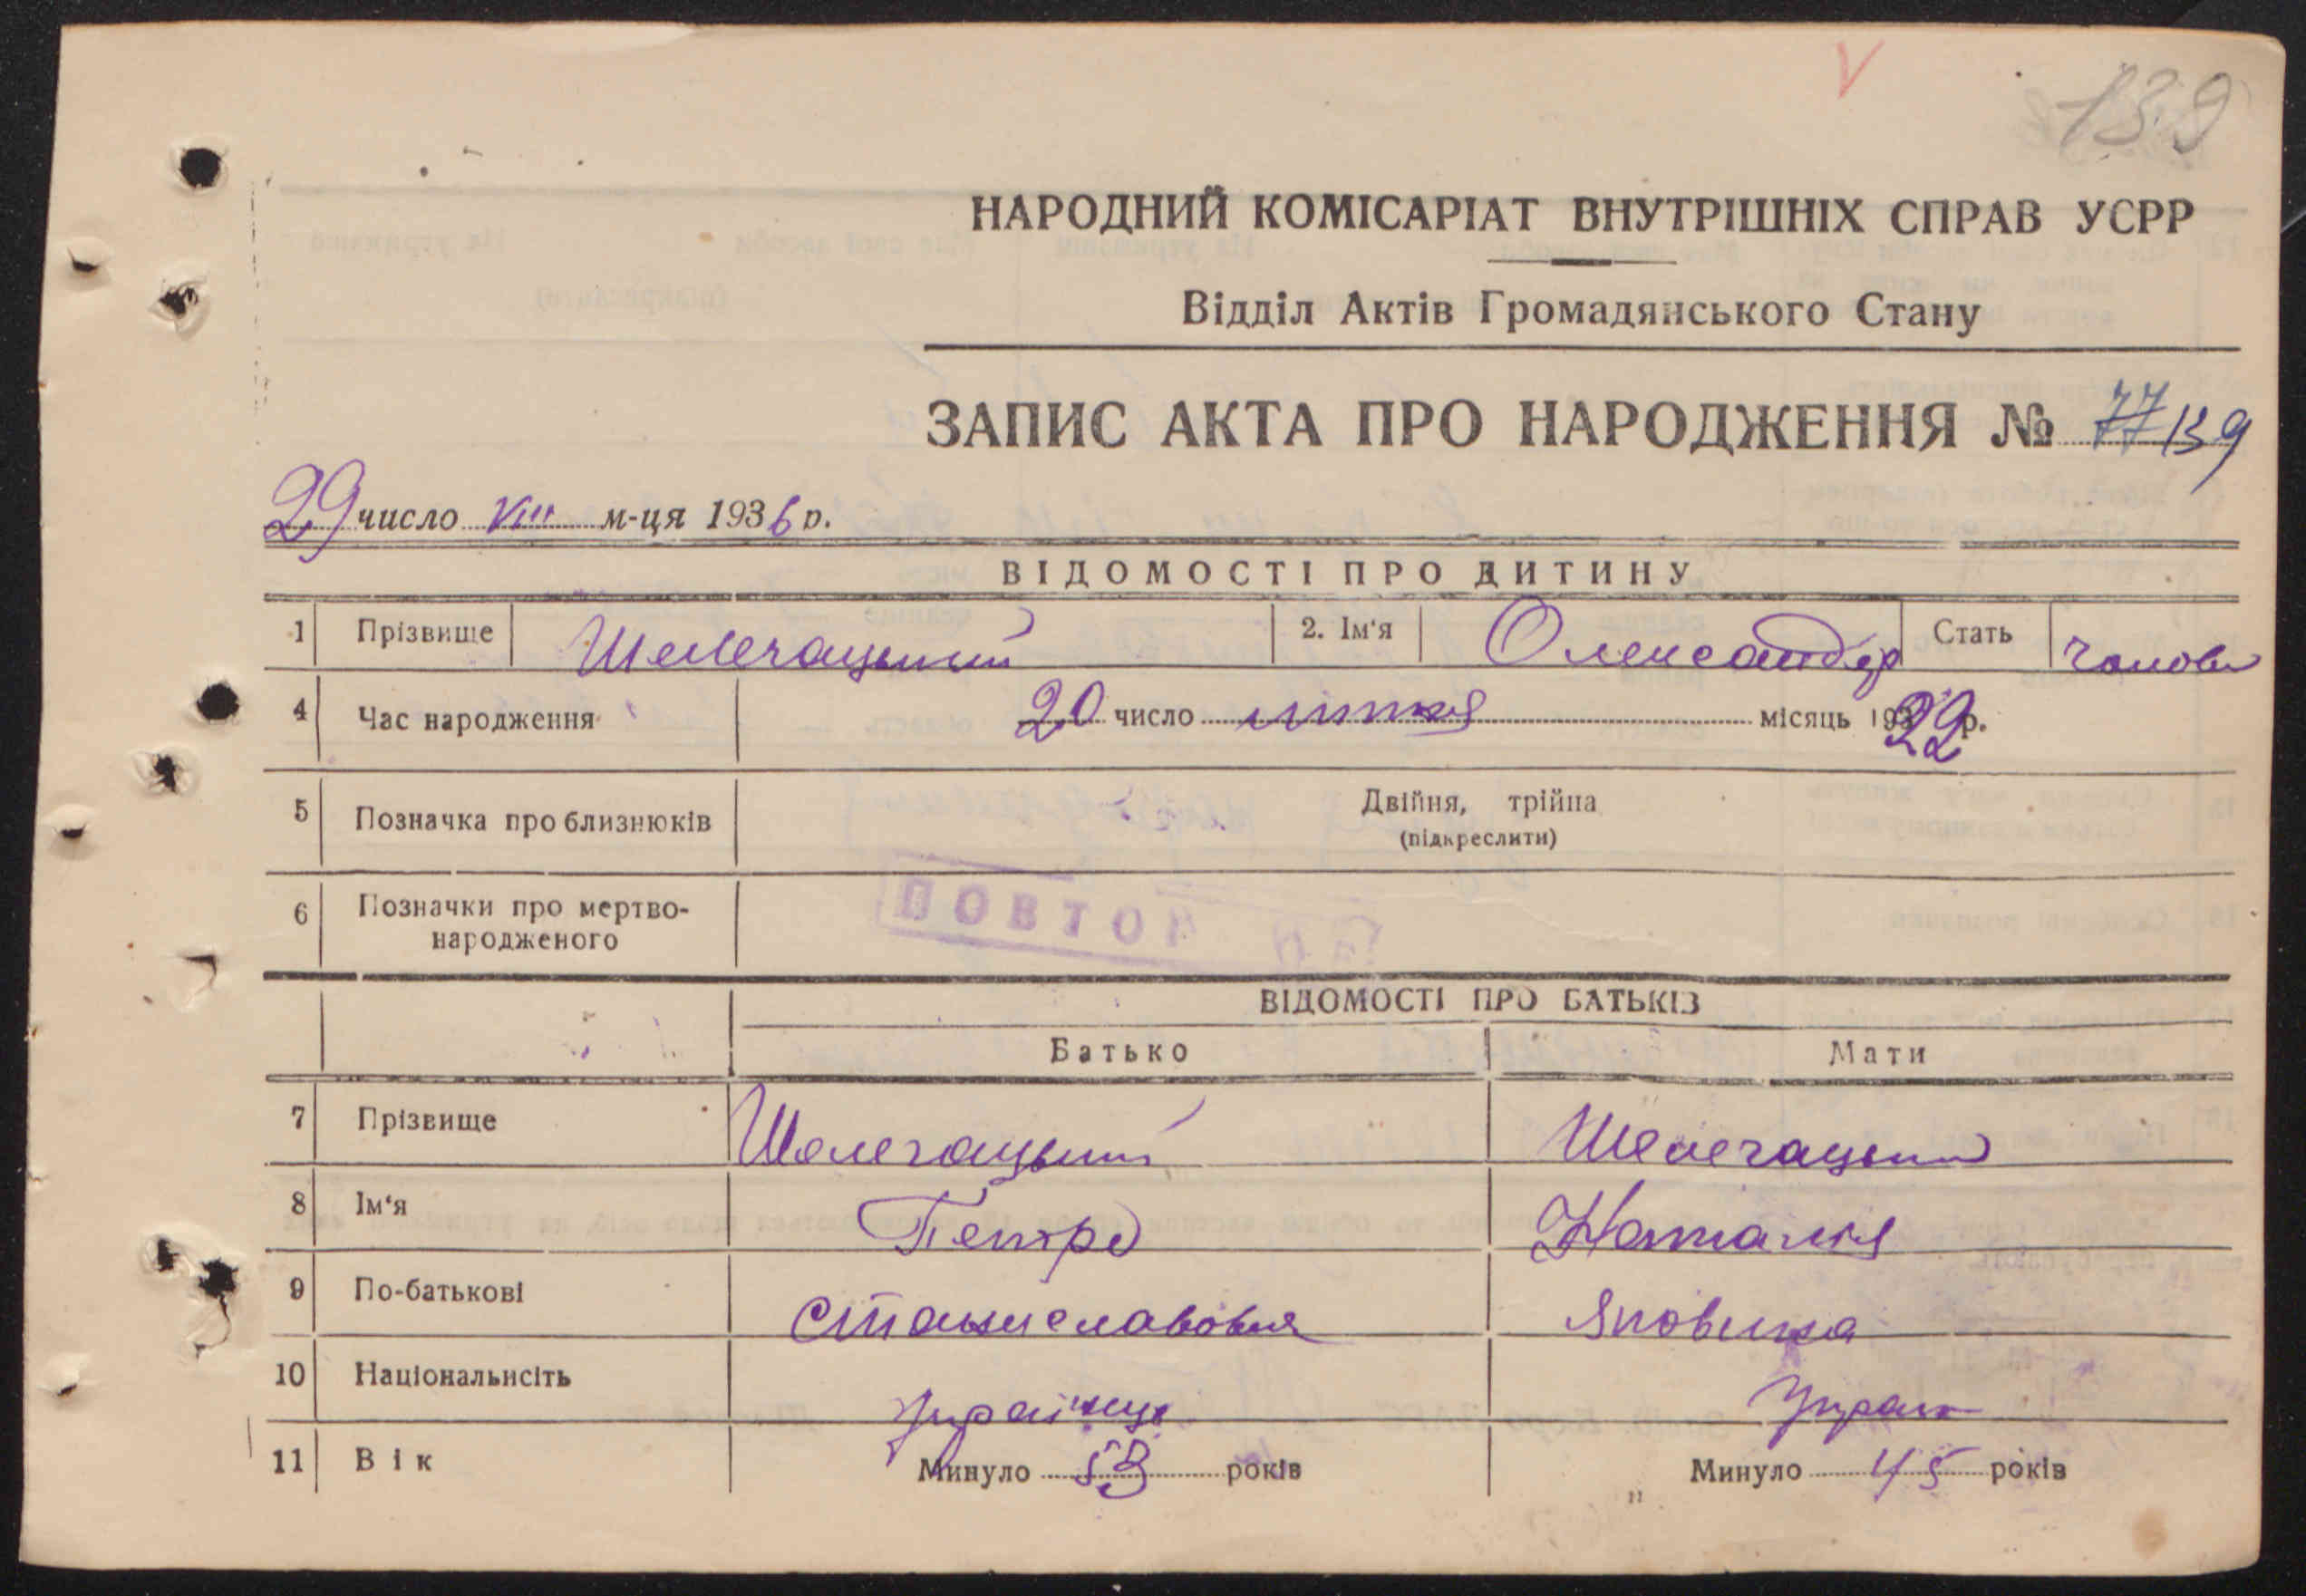 139
НАРОДНИЙ КОМІСАРІАТ ВНУТРІШНІХ СПРАВ УСРР
Відділ Актів Громадянського Стану
ЗАПИС АКТА ПРО НАРОДЖЕННЯ № 77/139
29 число VIII м-ця 1936 р.
ВІДОМОСТІ ПРО ДИТИНУ
1 Прізвище Шелегацький 2. Ім'я Олександр Стать чолов
4 Час народження 20 число липня місяць 1922 р.
5 Позначка про близнюків Двійня, трійна
(підкреслити)
6 Позначки про мертво-
народженого
ПОВТОР
ВІДОМОСТІ ПРО БАТЬКІВ
Батько Мати
7 Прізвище Шелегацький Шелегацьки
8 Ім'я Петро Наталія
9 По-батькові Станиславовия Яковина
10 Національність Українец Украін
11 Вік Минуло 53 років Минуло 45 років